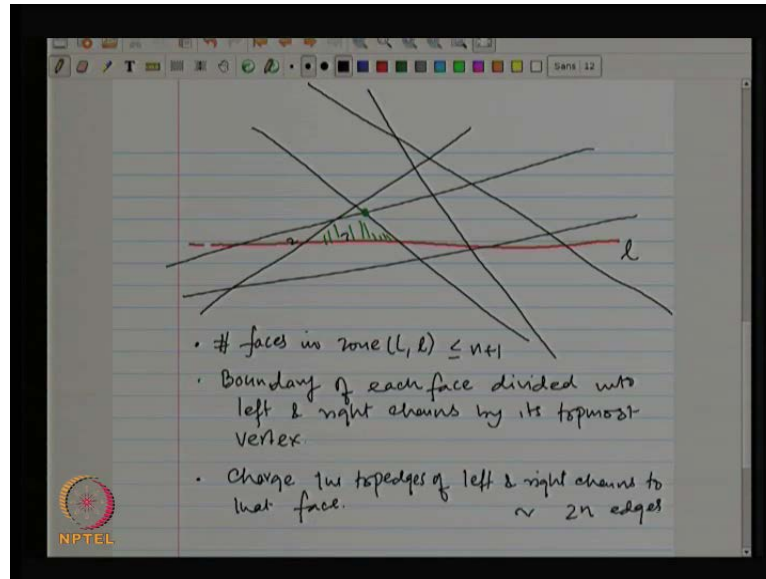 Sans 12
l
• # faces in zone (L, l) ≤ n+1
• Boundary of each face divided into
left & right chains by its topmost
vertex.
• Charge the topedges of left & right chains to
that face.
~ 2n edges
NPTEL